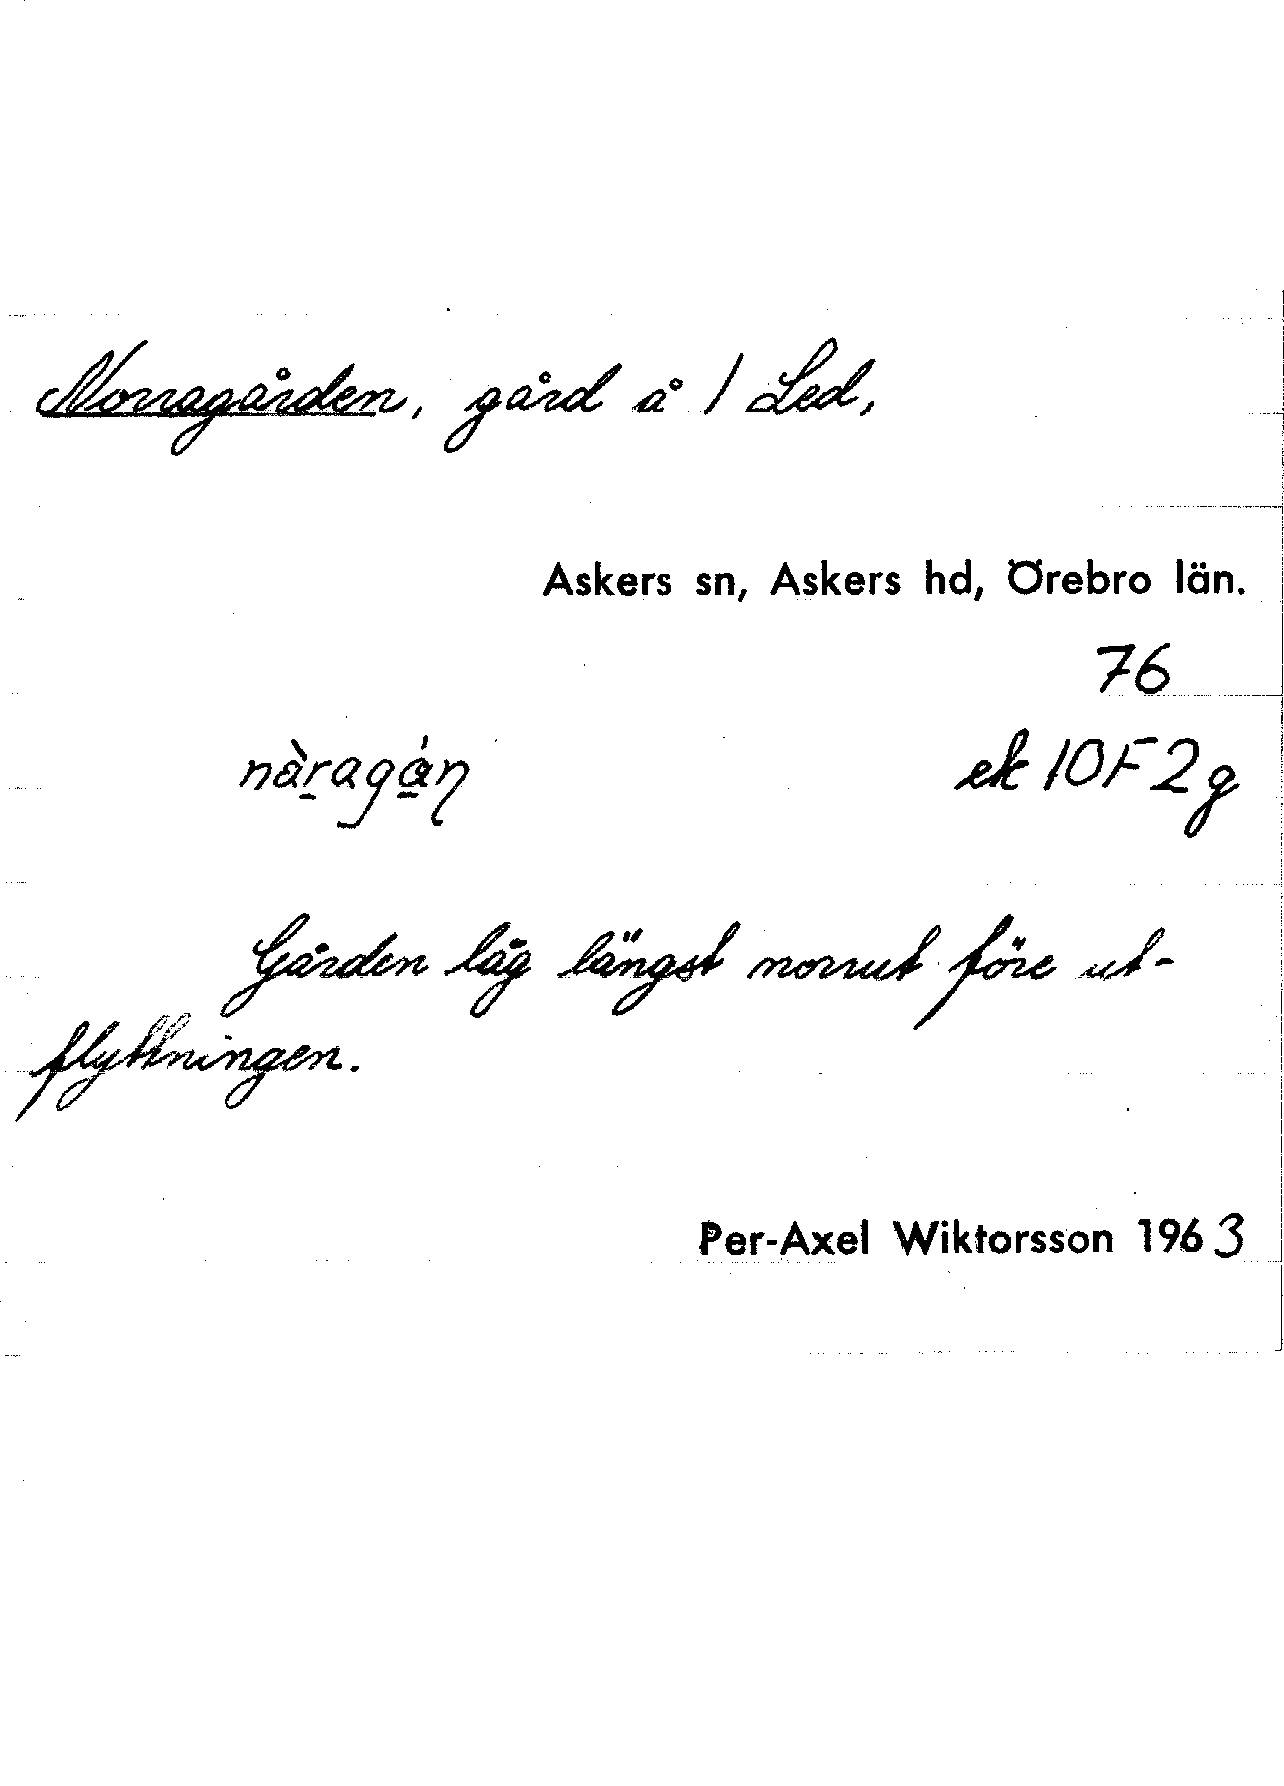 Norragården, gård å 1 Led,
Askers sn, Askers hd, Örebro län.
76
nàragán ek 10F2g
Gården låg längst norrut före ut-
flyttningen.
Per-Axel Wiktorsson 1963